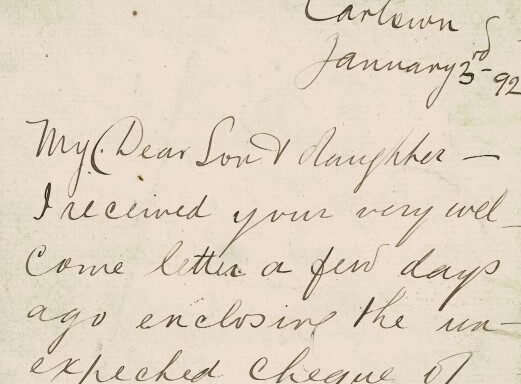 Carlown
January 3rd - 92
My Dear Son & daughter —
I received your very wel-
come letter a few days
ago enclosing the un-
expected cheque of